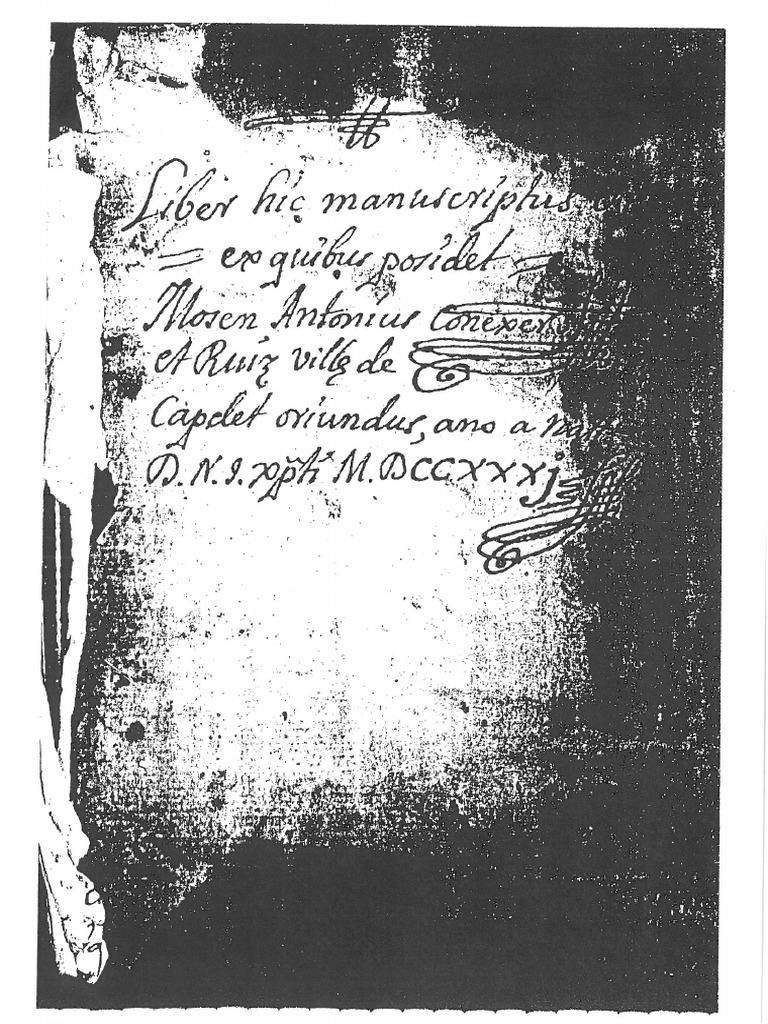 Liber hic manuscriptus
= ex quibus posidet =
Mosen Antonius Conexer
et Ruiz villę de
Capdet oriundus, ano a
D. N. I. xp̃ti M. DCCXXXj